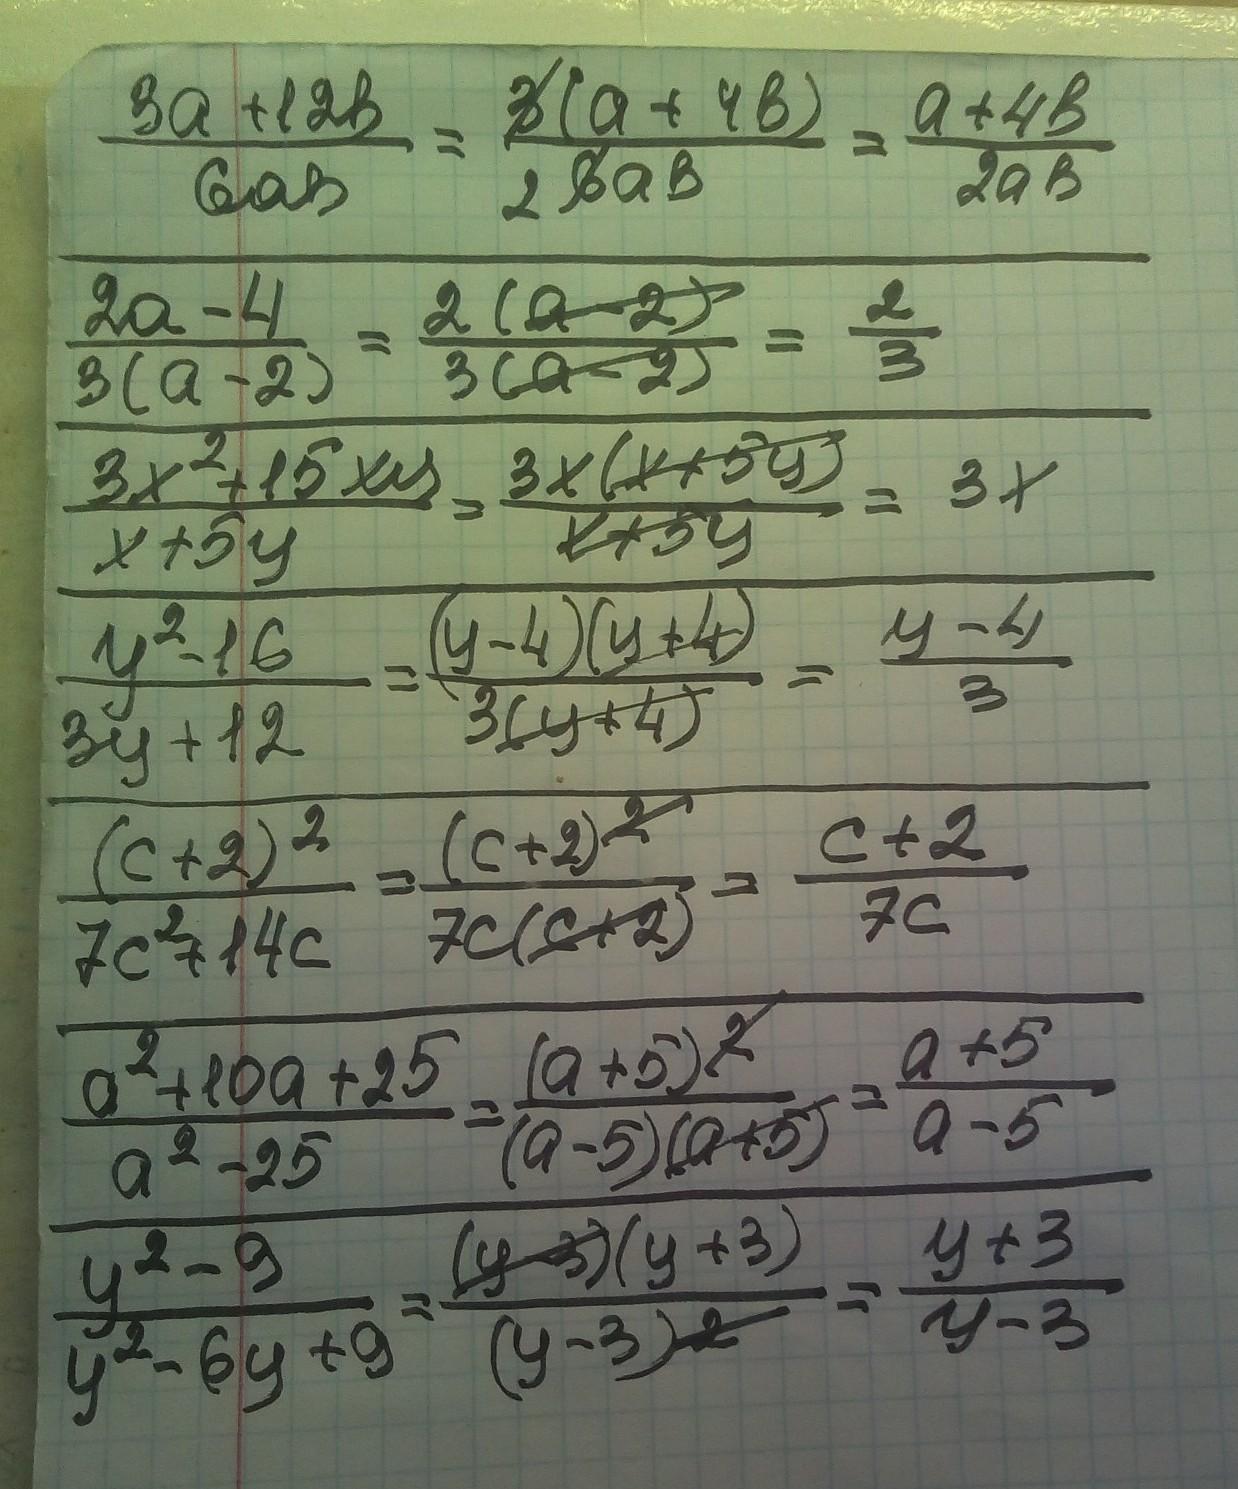 (3a+12b)/(6ab) = (3(a+4b))/(2 6ab) = (a+4b)/(2ab)
(2a-4)/(3(a-2)) = (2(a-2))/(3(a-2)) = 2/3
(3x²+15xy)/(x+5y) = (3x(x+5y))/(x+5y) = 3x
(y²-16)/(3y+12) = ((y-4)(y+4))/(3(y+4)) = (y-4)/3
(c+2)²/(7c²+14c) = (c+2)²/(7c(c+2)) = (c+2)/(7c)
(a²+10a+25)/(a²-25) = (a+5)²/((a-5)(a+5)) = (a+5)/(a-5)
(y²-9)/(y²-6y+9) = ((y-3)(y+3))/(y-3)² = (y+3)/(y-3)